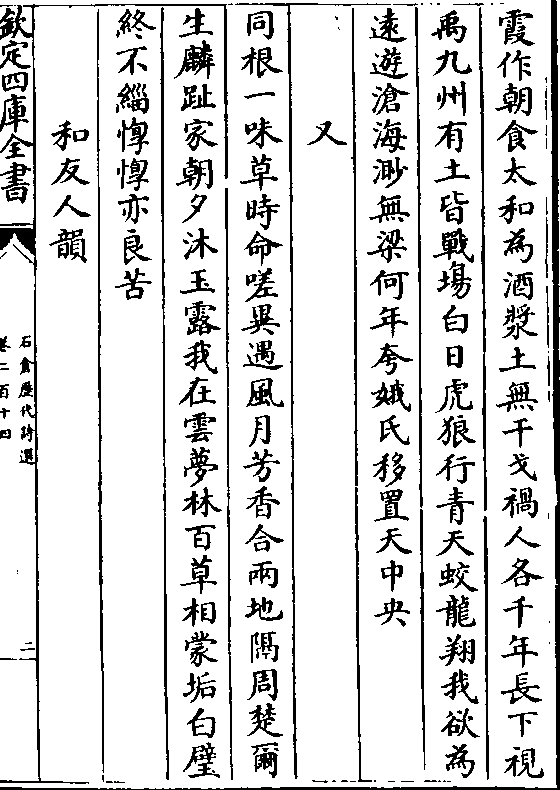 霞作朝食太和為酒漿土無干戈禍人各千年長下視
禹九州有土皆戰場白日虎狼行青天蛟龍翔我欲為
遠遊滄海渺無梁何年夸娥氏移置天中央
又
同根一味草時命嗟異遇風月芳香合兩地隔周楚爾
生麟趾家朝夕沐玉露我在雲夢林百草相蒙垢白璧
終不緇惸惸亦良苦
和友人韻
欽定四庫全書
石倉歴代詩選
卷二百十四
二